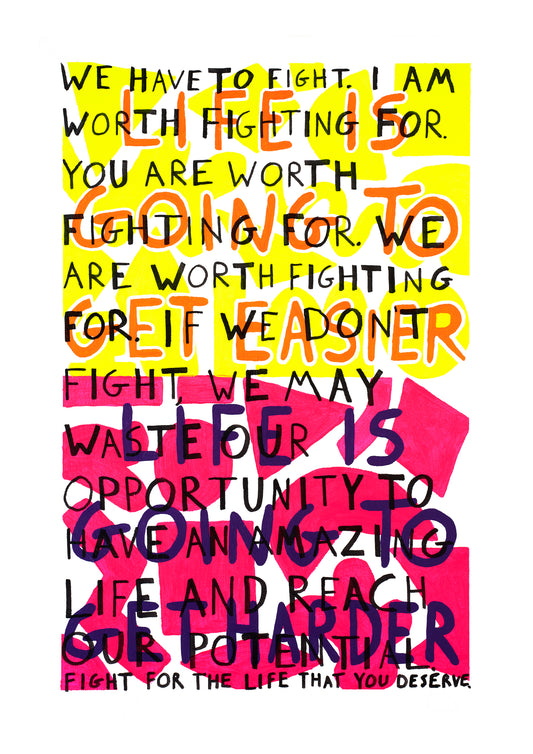 WE HAVE TO FIGHT. I AM
WORTH FIGHTING FOR.
YOU ARE WORTH
FIGHTING FOR. WE
ARE WORTH FIGHTING
FOR. IF WE DON'T
FIGHT, WE MAY
WASTE OUR
OPPORTUNITY TO
HAVE AN AMAZING
LIFE AND REACH
OUR POTENTIAL.
FIGHT FOR THE LIFE THAT YOU DESERVE.
LIFE IS
GOING TO
GET EASIER
LIFE IS
GOING TO
GET HARDER